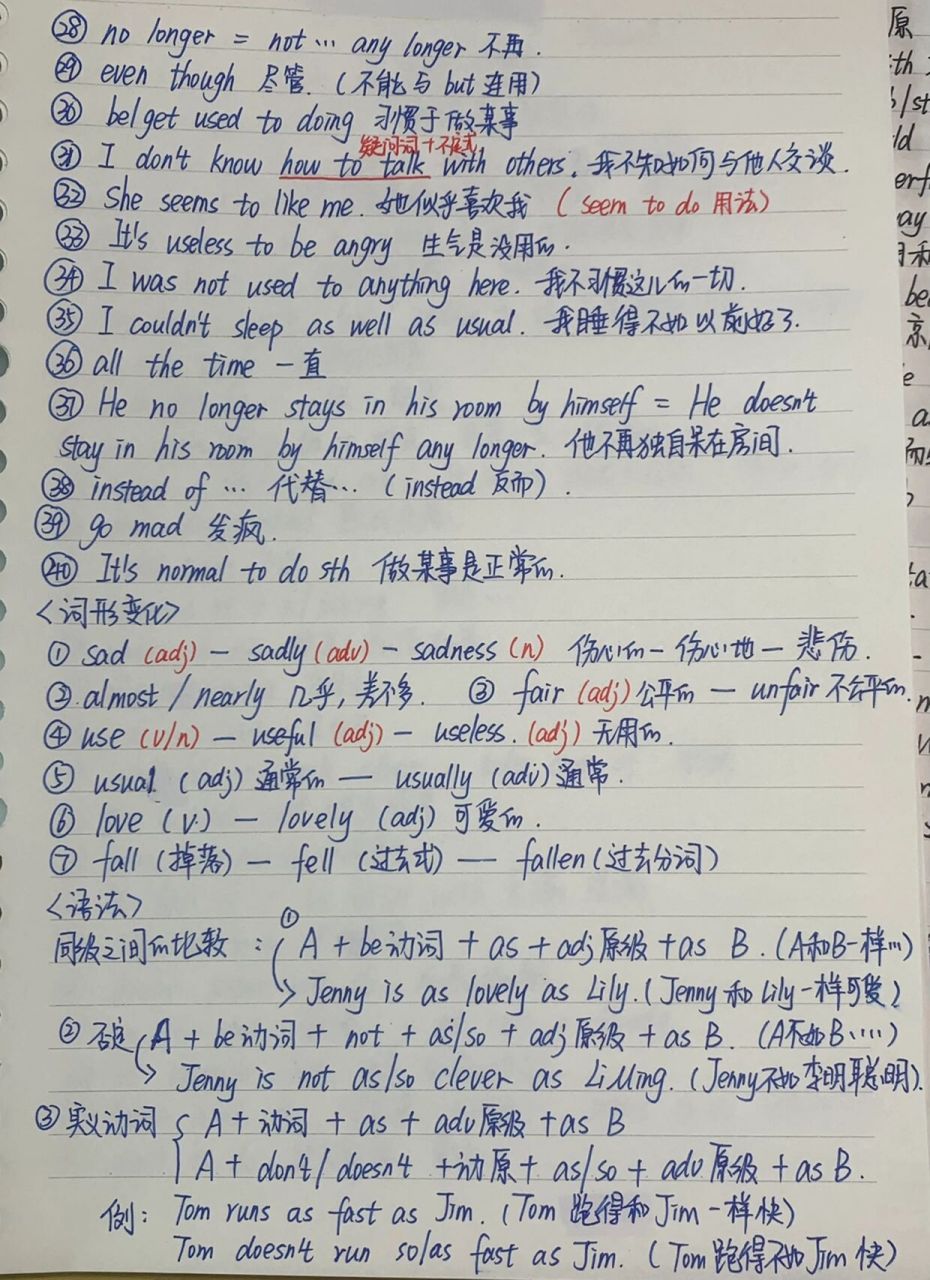 ㉘ no longer = not … any longer 不再.
㉙ even though 尽管. (不能与 but 连用)
㉚ be/get used to doing 习惯于做某事
疑问词+不定式
㉛ I don't know how to talk with others. 我不知如何与他人交谈.
㉜ She seems to like me. 她似乎喜欢我 (seem to do 用法)
㉝ It's useless to be angry 生气是没用的.
㉞ I was not used to anything here. 我不习惯这儿的一切.
㉟ I couldn't sleep as well as usual. 我睡得不如以前好了.
㊱ all the time 一直
㊲ He no longer stays in his room by himself = He doesn't
stay in his room by himself any longer. 他不再独自呆在房间.
㊳ instead of … 代替… (instead 反而).
㊴ go mad 发疯.
㊵ It's normal to do sth 做某事是正常的.
<词形变化>
① sad (adj) — sadly (adv) — sadness (n) 伤心的—伤心地—悲伤.
② almost / nearly 几乎,差不多. ③ fair (adj) 公平的 — unfair 不公平的.
④ use (v/n) — useful (adj) — useless. (adj) 无用的.
⑤ usual (adj) 通常的 — usually (adv) 通常.
⑥ love (v.) — lovely (adj) 可爱的.
⑦ fall (掉落) — fell (过去式) — fallen (过去分词)
<语法>
同级之间的比较: ① A + be动词 + as + adj原级 + as B. (A和B一样…)
Jenny is as lovely as Lily. (Jenny 和 Lily 一样可爱)
② 否定 A + be动词 + not + as/so + adj 原级 + as B. (A不如B….)
Jenny is not as/so clever as Li Ming. (Jenny不如李明聪明).
③ 实义动词 A + 动词 + as + adv原级 + as B
A + don't / doesn't + 动原 + as/so + adv 原级 + as B.
例: Tom runs as fast as Jim. (Tom 跑得和 Jim 一样快)
Tom doesn't run so/as fast as Jim. (Tom 跑得不如 Jim 快)